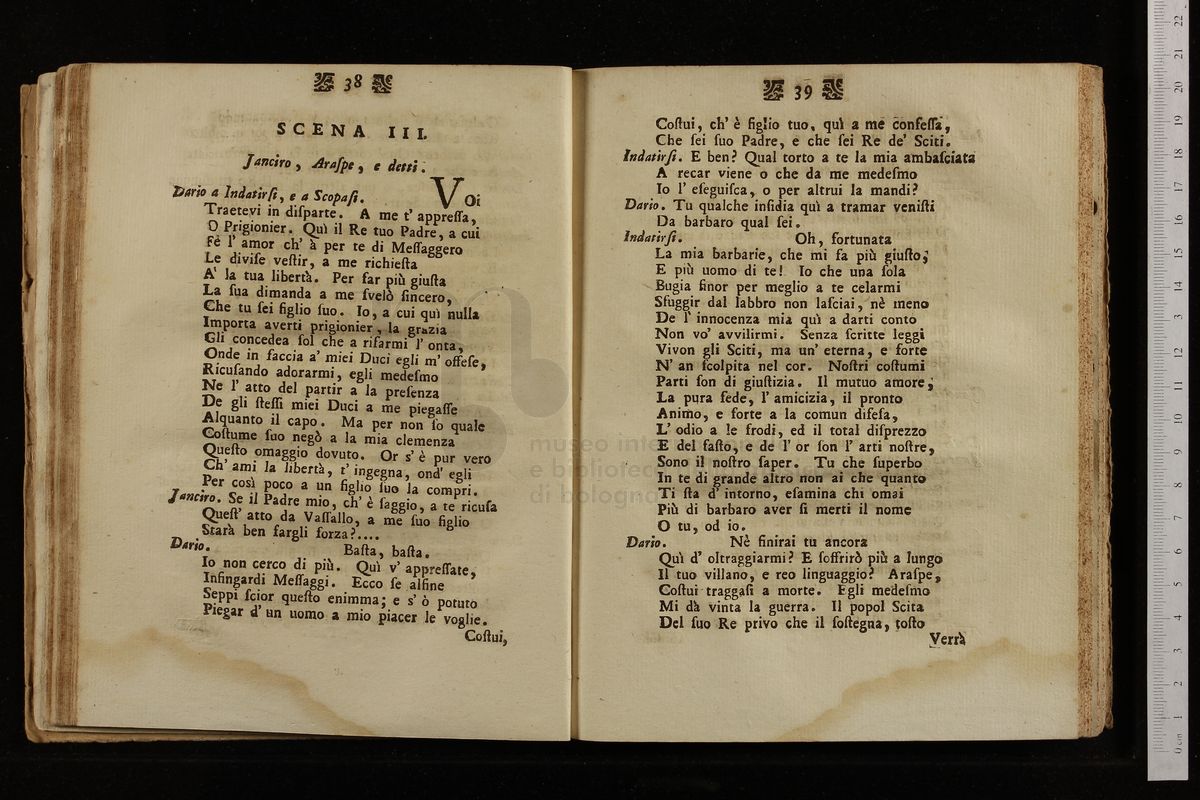 38
SCENA III.
Janciro, Araſpe, e detti.
Dario a Indatirſi, e a Scopaſi. Voi
Traetevi in diſparte. A me t' appreſſa,
O Prigionier. Quì il Re tuo Padre, a cui
Fè l' amor ch' à per te di Meſſaggero
Le diviſe veſtir, a me richieſta
A' la tua libertà. Per far più giuſta
La ſua dimanda a me ſvelò ſincero,
Che tu ſei figlio ſuo. Io, a cui quì nulla
Importa averti prigionier, la grazia
Gli concedea ſol che a rifarmi l' onta,
Onde in faccia a' miei Duci egli m' offeſe,
Ricuſando adorarmi, egli medeſmo
Ne l' atto del partir a la preſenza
De gli ſteſſi miei Duci a me piegaſſe
Alquanto il capo. Ma per non ſo quale
Coſtume ſuo negò a la mia clemenza
Queſto omaggio dovuto. Or s' è pur vero
Ch' ami la libertà, t' ingegna, ond' egli
Per così poco a un figlio ſuo la compri.
Janciro. Se il Padre mio, ch' è ſaggio, a te ricuſa
Queſt' atto da Vaſſallo, a me ſuo figlio
Starà ben fargli forza?....
Dario. Baſta, baſta.
Io non cerco di più. Quì v' appreſſate,
Infingardi Meſſaggi. Ecco ſe alfine
Seppi ſcior queſto enimma; e s' ò potuto
Piegar d' un uomo a mio piacer le voglie.
Coſtui,
39
Coſtui, ch' è figlio tuo, quì a me confeſſa,
Che ſei ſuo Padre, e che ſei Re de' Sciti.
Indatirſi. E ben? Qual torto a te la mia ambaſciata
A recar viene o che da me medeſmo
Io l' eſeguiſca, o per altrui la mandi?
Dario. Tu qualche inſidia quì a tramar veniſti
Da barbaro qual ſei.
Indatirſi. Oh, fortunata
La mia barbarie, che mi fa più giuſto,
E più uomo di te! Io che una ſola
Bugia finor per meglio a te celarmi
Sfuggir dal labbro non laſciai, nè meno
De l' innocenza mia quì a darti conto
Non vo' avvilirmi. Senza ſcritte leggi
Vivon gli Sciti, ma un' eterna, e forte
N' an ſcolpita nel cor. Noſtri coſtumi
Parti ſon di giuſtizia. Il mutuo amore,
La pura fede, l' amicizia, il pronto
Animo, e forte a la comun difeſa,
L' odio a le frodi, ed il total diſprezzo
E del faſto, e de l' or ſon l' arti noſtre,
Sono il noſtro ſaper. Tu che ſuperbo
In te di grande altro non ai che quanto
Ti ſta d' intorno, eſamina chi omai
Più di barbaro aver ſi merti il nome
O tu, od io.
Dario. Nè finirai tu ancora
Quì d' oltraggiarmi? E ſoffrirò più a lungo
Il tuo villano, e reo linguaggio? Araſpe,
Coſtui traggaſi a morte. Egli medeſmo
Mi dà vinta la guerra. Il popol Scita
Del ſuo Re privo che il ſoſtegna, toſto
Verrà
museo inte
e bibliotec
di bologna
0 cm 1 2 3 4 5 6 7 8 9 10 11 12 13 14 15 16 17 18 19 20 21 22